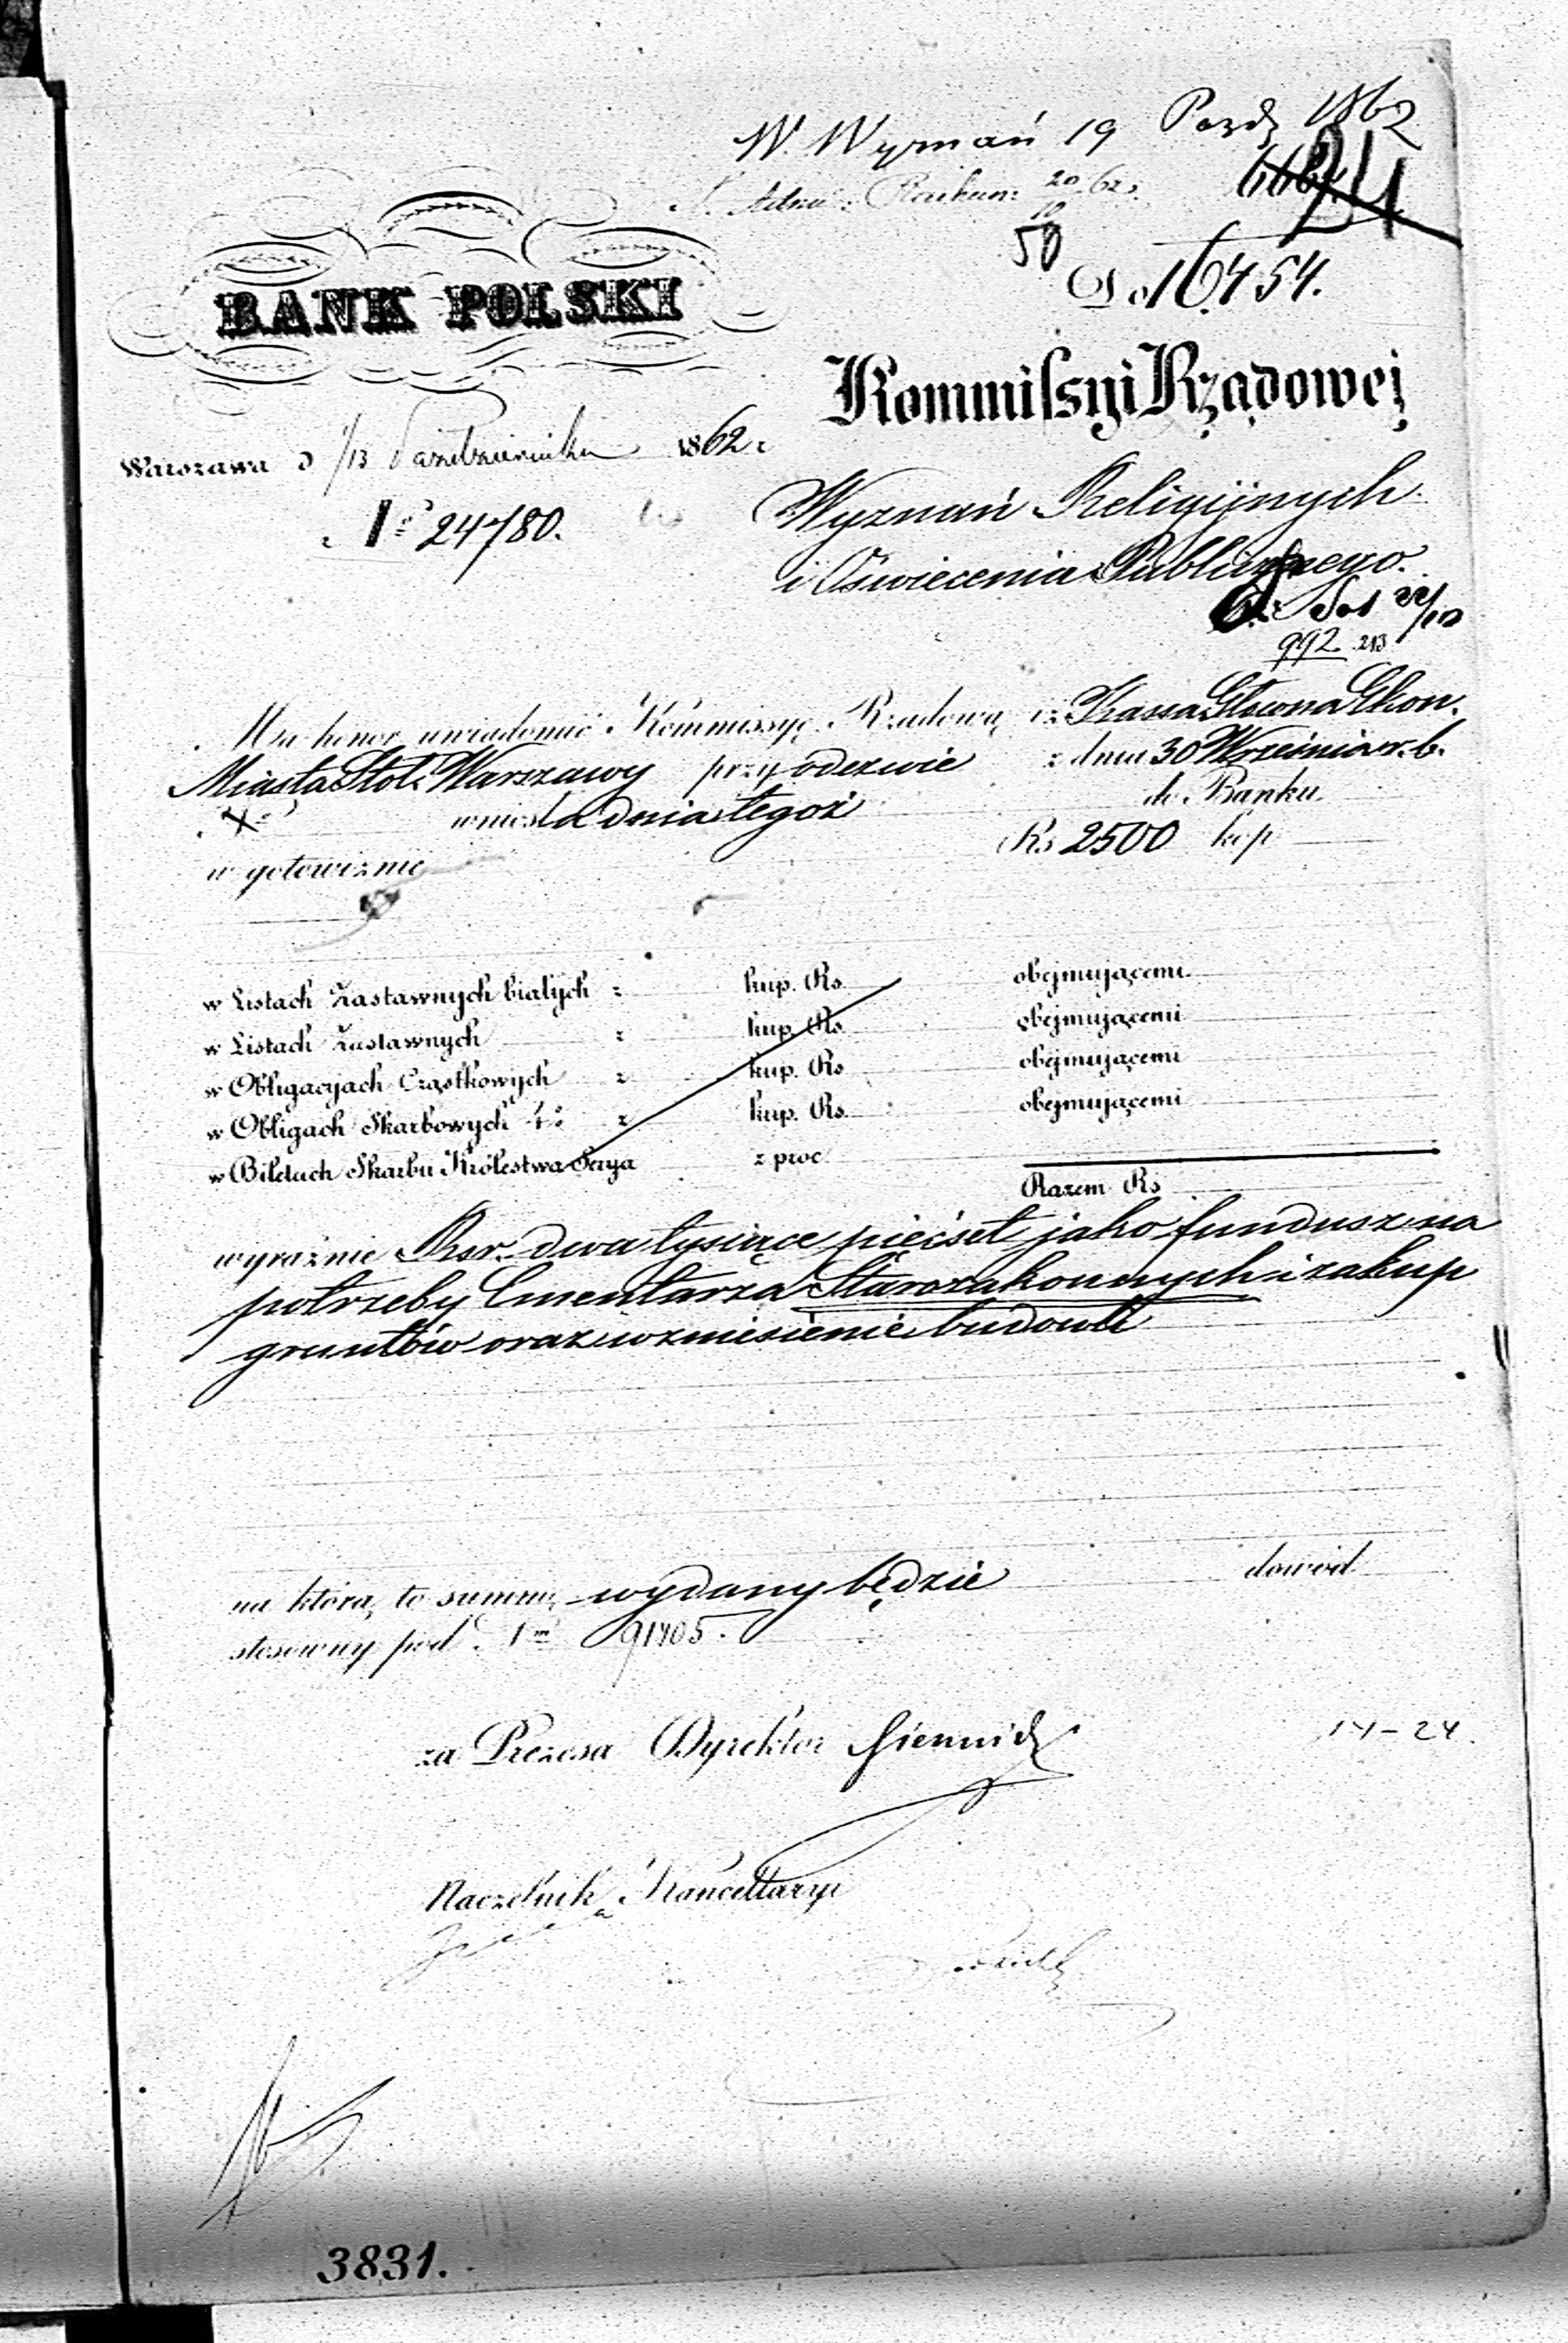 W. Wyznań 19 Paźdz 1862
20/10 62
50
24
Do 16454.
BANK POLSKI
Kommissyi Rządowej
Warszawa d 1/13 Października 1862 r
№ 24780.
Wyznań Religijnych
i Oświecenia Publicznego.
992
Ma honor uwiadomić Kommissyę Rządową iż Kassa Głowna Ekon.
Miasta Stoł. Warszawy przy odezwie z dnia 30 Września r. b.
№ wniosła dnia tegoż do Banku
w gotowiznie Rs 2500 kop
w Listach Zastawnych białych z kup. Rs obejmującemi
w Listach Zastawnych z kup. Rs obejmującemi
w Obligacyach Cząstkowych z kup. Rs obejmującemi
w Obligach Skarbowych 4% z kup. Rs obejmującemi
w Biletach Skarbu Królestwa Serya z proc
Razem Rs
wyraźnie Rsr. dwa tysiące pięćset jako fundusz na
potrzeby Cmentarza Starozakonnych i zakup
gruntów oraz wzniesienie budowli
na którą to summę wydany będzie dowód
stosowny pod Nm 91705.
za Prezesa Dyrektor
14-24
Naczelnik Kancellaryi
3831.